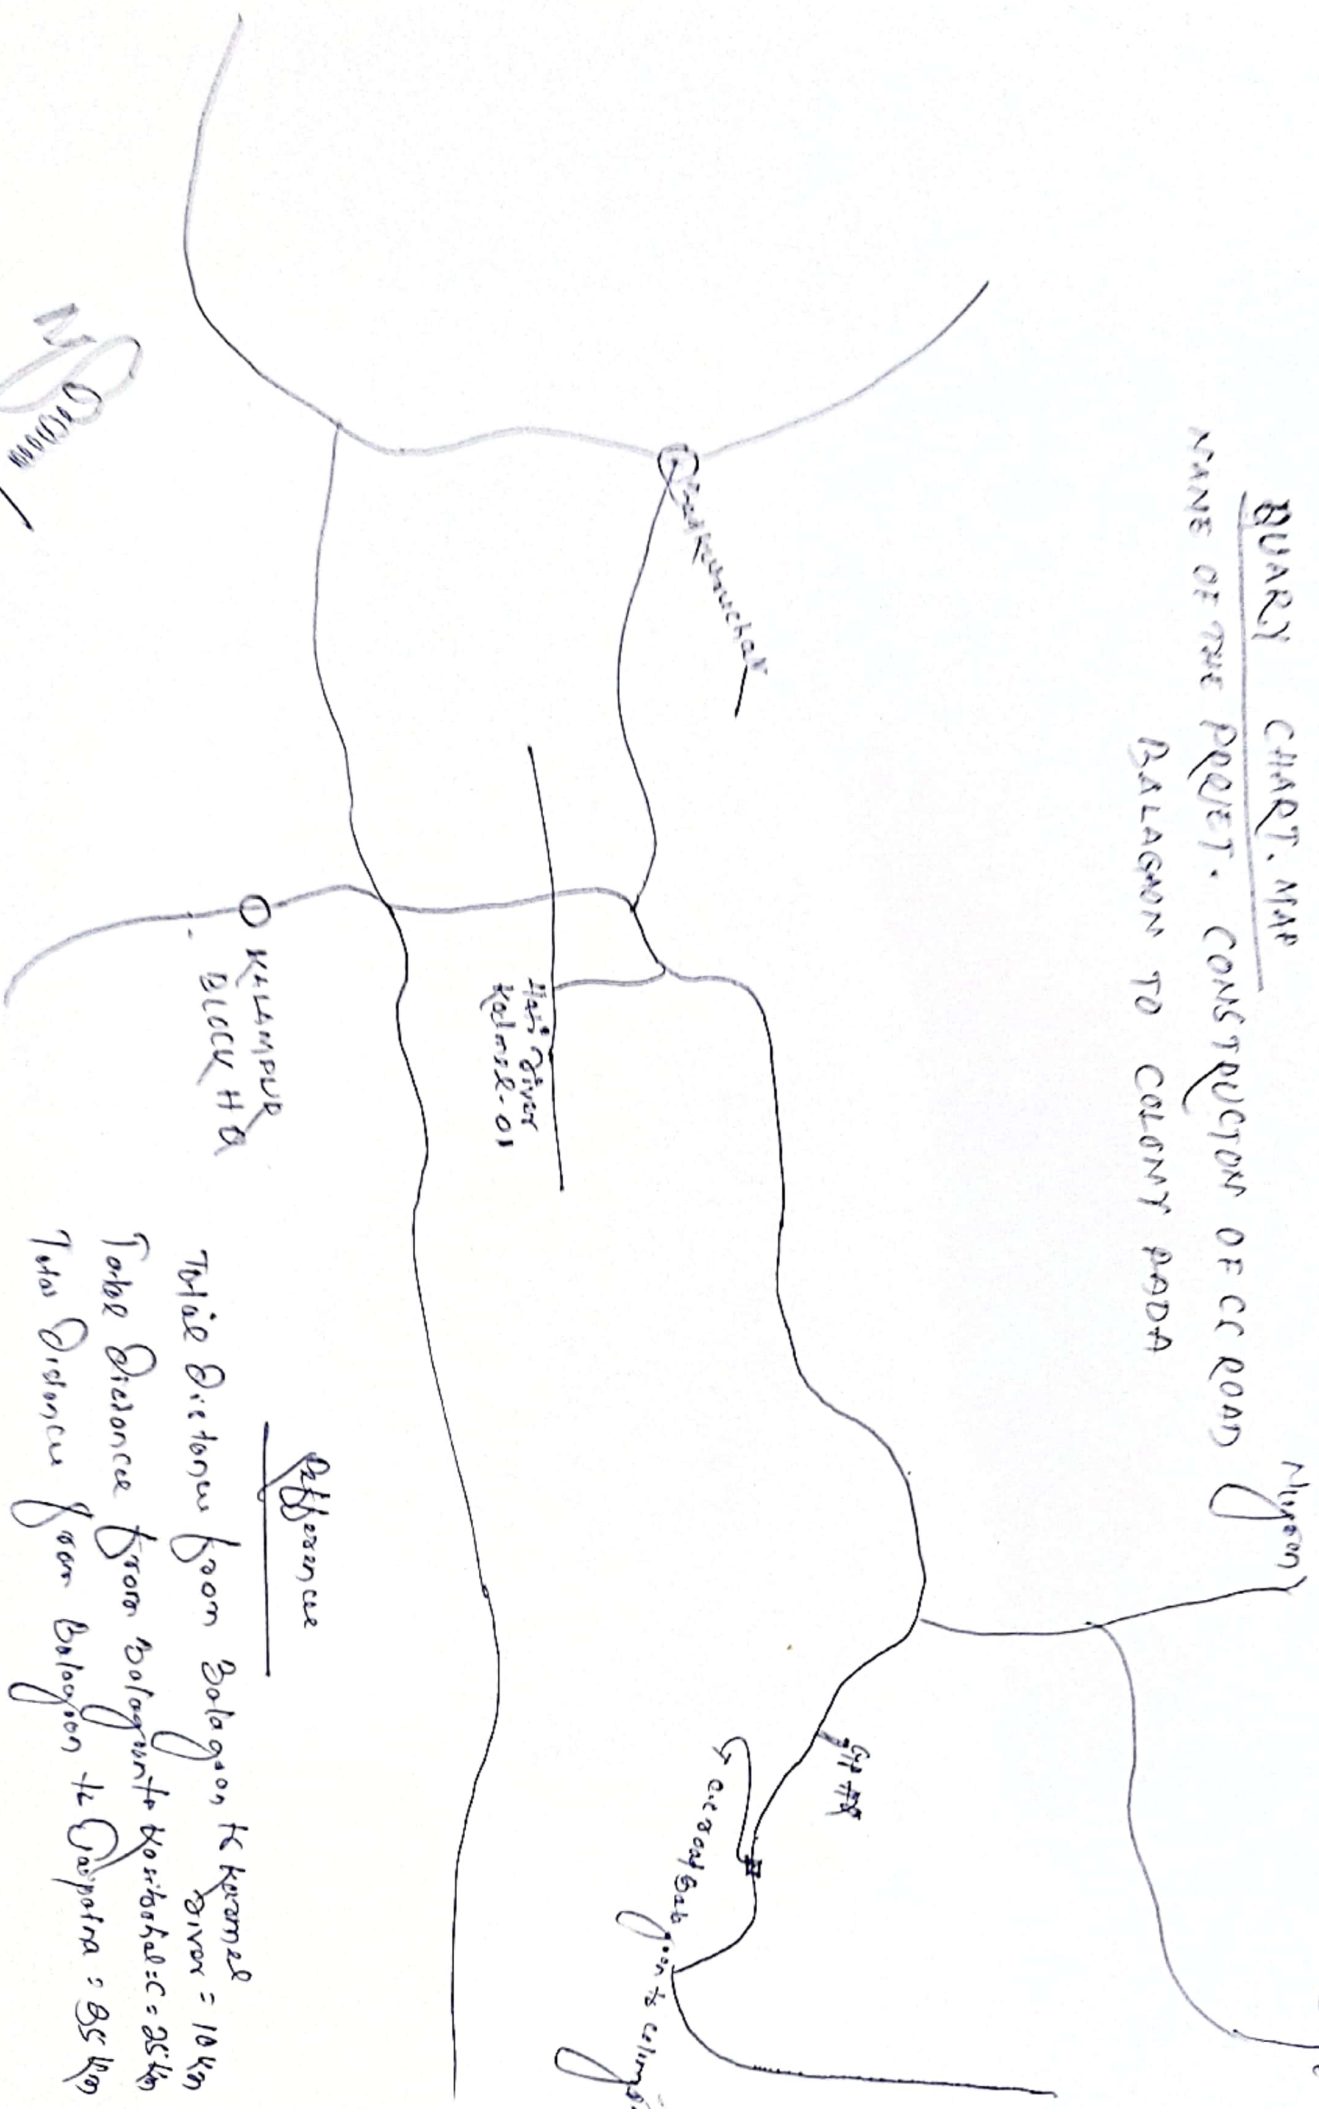 QUARY CHART. MAP
NANE OF THE PROJET. CONSTRUCTON OF CC ROAD
BALAGAON TO COLONY PADA
Hati River
Kalmel-01
KALAMPUR
BLOCK HQ
G.P HQ
C.C road Balagaon to
Difference
Total Distance from Balagaon to Karmel
River = 10 km
Total Distance from Balagaon to = 25 km
Total Distance from Balagaon to = 35 km